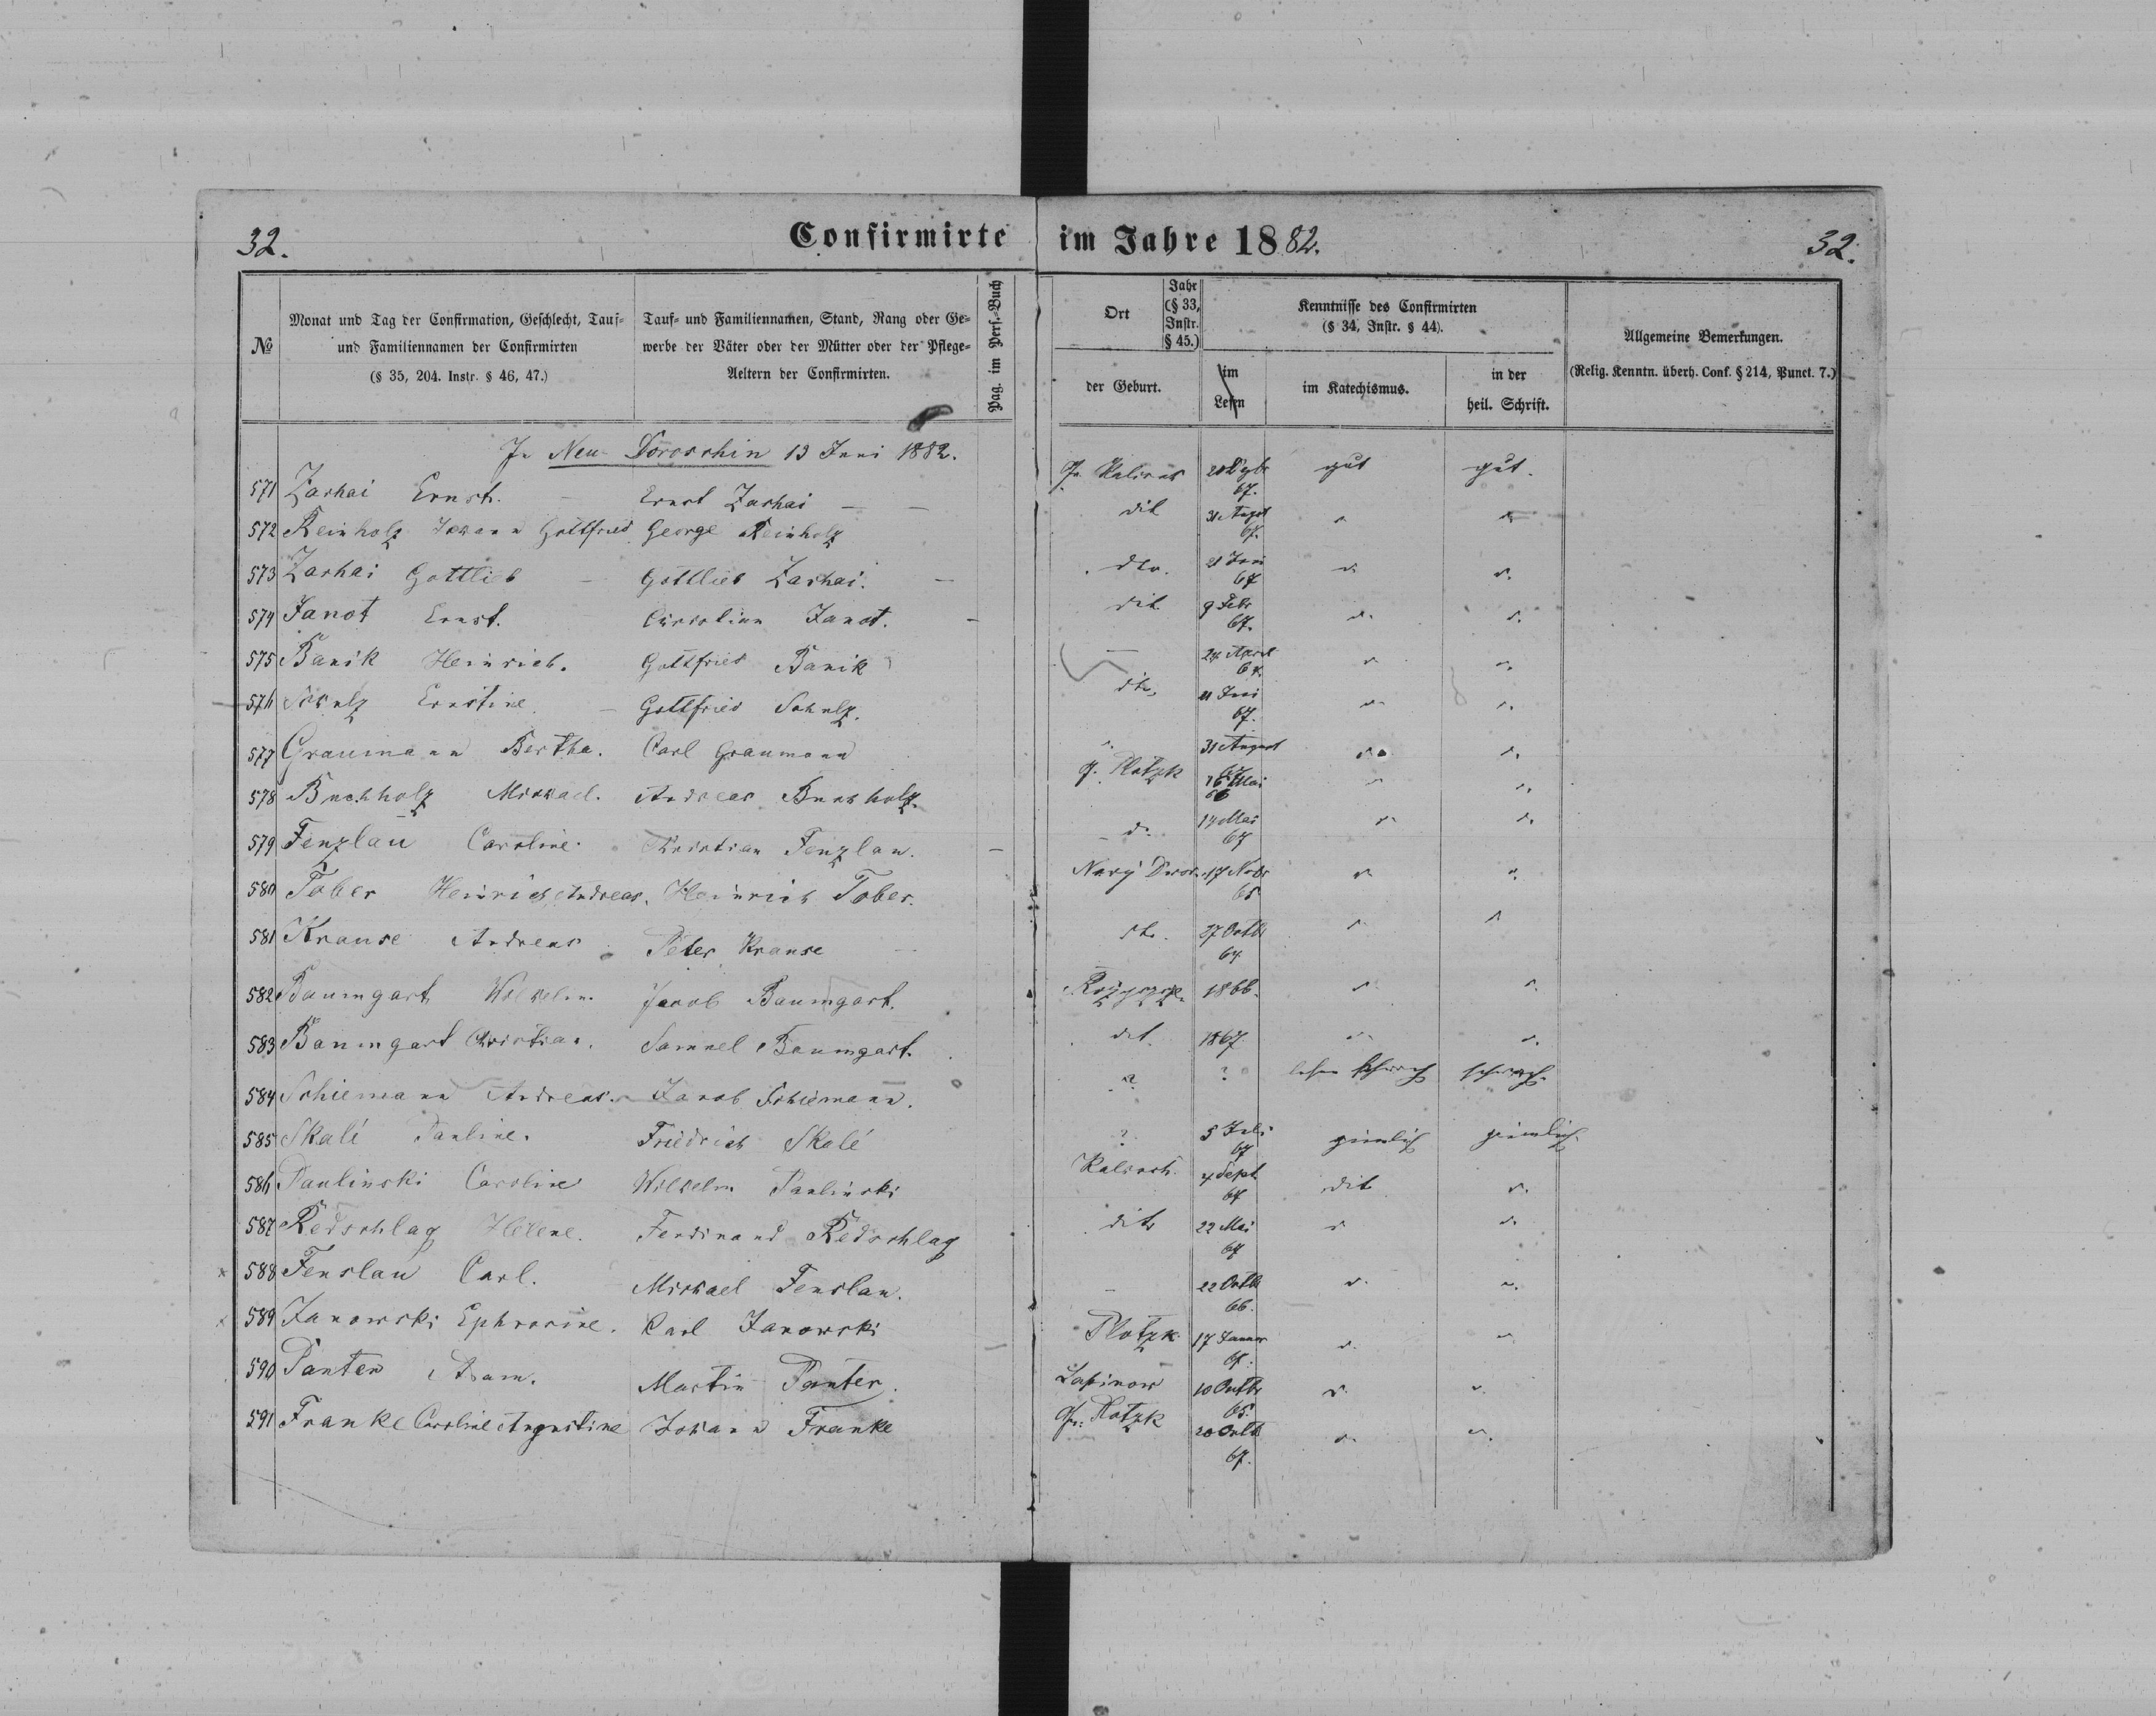 32.
Confirmirte im Jahre 1882.
32.
№
Monat und Tag der Confirmation, Geschlecht, Tauf-
und Familiennamen der Confirmirten
(§ 35, 204. Instr. § 46, 47.)
Tauf- und Familiennamen, Stand, Rang oder Ge-
werbe der Väter oder der Mütter oder der Pflege-
Aeltern der Confirmirten.
Pag. im Pers.-Buch
Ort
Jahr
(§ 33,
Instr.
§ 45.)
der Geburt.
Kenntnisse des Confirmirten
(§ 34, Instr. § 44).
im
Lesen
im Katechismus.
in der
heil. Schrift.
Allgemeine Bemerkungen.
(Relig. Kenntn. überh. Conf. § 214, Punct. 7.)
In Neu-Doroschin 13 Juni 1882.
571 Zachai Ernst. Ernst Zachai gut gut.
67.
572 Reinholz Johann Gottfried George Reinholz dit 31 August
67.
573 Zachai Gottlieb Gottlieb Zachai. dto. 21
67
574 Janot Ernst. Janot. dit 9 Febr
67.
575 Banik Heinrich. Gottfried Banik 24 April
576 Schulz Ernstine. Gottfried Schulz.
67.
577 Graumann Bertha. Carl Graumann 31 August
578 Buchholz Michael. Andreas Buchholz. G. Plotzk 16 Mai
66
579 Fenzlau Caroline. Christian Fenzlau. 14 Mai
67
580 Tober Heinrich Andreas. Heinrich Tober. 17 Nobr
65
581 Krause Andreas Peter Krause 27 Octb
64
582 Baumgart Wilhelm Jacob Baumgart. 1866.
583 Baumgart Christian. Samuel Baumgart. dit. 1867
584 Schiemann Andreas. Jacob Schiemann. ? ? schwach schwach.
585 Skalé Pauline. Friedrich Skalé ? 5 Juli ziemlich ziemlich.
67
586 Paulinski Caroline Wilhelm Paulinski 4 Sept dit
67
587 Redschlag Helene. Ferdinand Redschlag dito 22 Mai
67
588 Fenslau Carl. Michael Fenslau. 22 Octb
66.
589 Janowski Ephrosine. Carl Janowski Plotzk 17 Januar
590 Panter Adam. Martin Panter. Lapinow 10 Octbr
65.
591 Franke Caroline Augustine Johann Franke Plotzk 20 Octb
67.